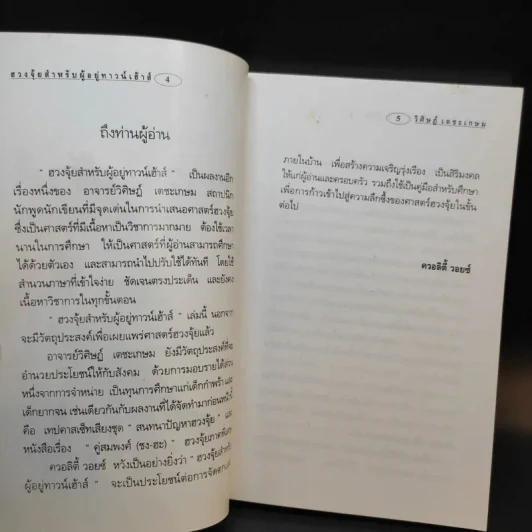 ฮวงจุ้ยสำหรับผู้อยู่ทาวน์เฮ้าส์ 4
ถึงท่านผู้อ่าน
" ฮวงจุ้ยสำหรับผู้อยู่ทาวน์เฮ้าส์ " เป็นผลงานอีก
เรื่องหนึ่งของ อาจารย์วิศิษฎ์ เตชะเกษม สถาปนิก
นักพูดนักเขียนที่มีจุดเด่นในการนำเสนอศาสตร์ฮวงจุ้ย
ซึ่งเป็นศาสตร์ที่มีเนื้อหาเป็นวิชาการมากมาย ต้องใช้เวลา
นานในการศึกษา ให้เป็นศาสตร์ที่ผู้อ่านสามารถศึกษา
ได้ด้วยตัวเอง และสามารถนำไปปรับใช้ได้ทันที โดยใช้
สำนวนภาษาที่เข้าใจง่าย ชัดเจนตรงประเด็น และยังคง
เนื้อหาวิชาการในทุกขั้นตอน
" ฮวงจุ้ยสำหรับผู้อยู่ทาวน์เฮ้าส์ " เล่มนี้ นอกจาก
จะมีวัตถุประสงค์เพื่อเผยแพร่ศาสตร์ฮวงจุ้ยแล้ว
อาจารย์วิศิษฎ์ เตชะเกษม ยังมีวัตถุประสงค์ที่จะ
อำนวยประโยชน์ให้กับสังคม ด้วยการมอบรายได้ส่วน
หนึ่งจากการจำหน่าย เป็นทุนการศึกษาแก่เด็กกำพร้าและ
เด็กยากจน เช่นเดียวกันกับผลงานที่ได้จัดทำมาก่อนหน้านี้
คือ เทปคาสเซ็ทเสียงชุด " สนทนาปัญหาฮวงจุ้ย " และ
หนังสือเรื่อง " คู่สมพงศ์ (ชง-ฮะ) " ฮวงจุ้ยภาคพิเศษ
ควอลิตี้ วอยซ์ หวังเป็นอย่างยิ่งว่า " ฮวงจุ้ยสำหรับ
ผู้อยู่ทาวน์เฮ้าส์ " จะเป็นประโยชน์ต่อการจัดตกแต่ง
5 วิศิษฎ์ เตชะเกษม
ภายในบ้าน เพื่อสร้างความเจริญรุ่งเรือง เป็นสิริมงคล
ให้แก่ผู้อ่านและครอบครัว รวมถึงใช้เป็นคู่มือสำหรับศึกษา
เพื่อการก้าวเข้าไปสู่ความลึกซึ้งของศาสตร์ฮวงจุ้ยในขั้น
ต่อไป
ควอลิตี้ วอยซ์